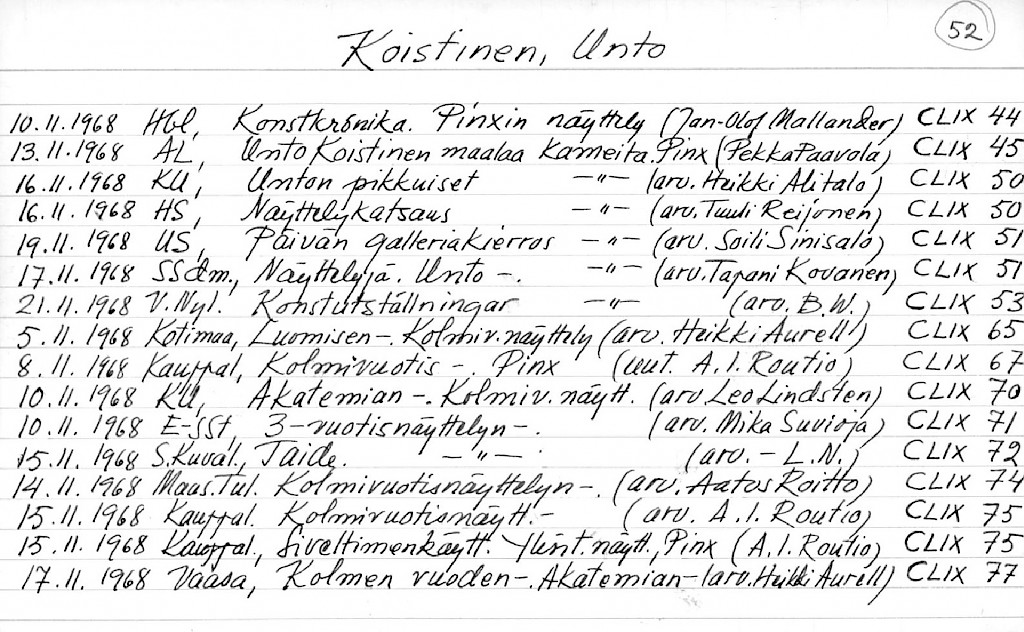 52
Koistinen, Unto
10.11.1968 Hbl, Konstkrönika. Pinxin näyttely (Jan-Olof Mallander) CLIX 44
13.11.1968 AL, Unto Koistinen maalaa kameita. Pinx (Pekka Paavola) CLIX 45
16.11.1968 KU, Unton pikkuiset -"- (arv. Heikki Alitalo) CLIX 50
16.11.1968 HS, Näyttelykatsaus -"- (arv. Tuuli Reijonen) CLIX 50
19.11.1968 US, Päivän galleriakierros -"- (arv. Soili Sinisalo) CLIX 51
17.11.1968 SSdm., Näyttelyjä. Unto -. -"- (arv. Tapani Kovanen) CLIX 51
21.11.1968 V.Nyl. Konstutställningar -"- (arv. B.W.) CLIX 53
5.11.1968 Kotimaa, Luomisen -. Kolmiv. näyttely (arv. Heikki Aurell) CLIX 65
8.11.1968 Kauppal, Kolmivuotis -. Pinx (uut. A.I. Routio) CLIX 67
10.11.1968 KU, Akatemian -. Kolmiv. näytt. (arv Leo Lindsten) CLIX 70
10.11.1968 E-SSt, 3-vuotisnäyttelyn -. (arv. Mika Suvioja) CLIX 71
15.11.1968 S.Kuval., Taide. -"- (arv. - L.N.) CLIX 72
14.11.1968 Maas.Tul. Kolmivuotisnäyttelyn -. (arv. Aatos Roitto) CLIX 74
15.11.1968 Kauppal. Kolmivuotisnäytt. - (arv. A.I. Routio) CLIX 75
15.11.1968 Kauppal., Siveltimenkäytt. Ylint. näytt., Pinx (A.I. Routio) CLIX 75
17.11.1968 Vaasa, Kolmen vuoden -. Akatemian - (arv. Heikki Aurell) CLIX 77